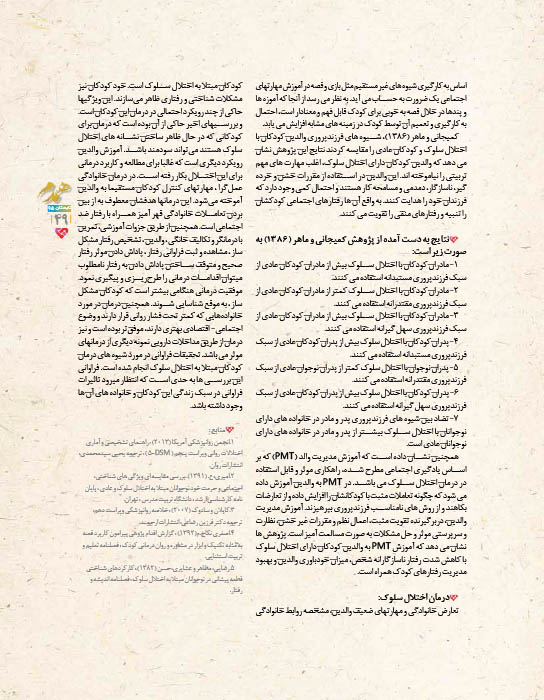 اساس به کارگیری شیوه های غیر مستقیم مثل بازی و قصه در آموزش مهارتهای
اجتماعی یک ضرورت به حساب می آید. به نظر می رسد از آنجا که آموزه ها
و پندها در خلال قصه به خوبی برای کودک قابل فهم و معنادار است، احتمال
به کارگیری و تعمیم آن توسط کودک در زمینه های مشابه افزایش می یابد.
کمیجانی و ماهر (۱۳۸۶)، شیوه های فرزندپروری والدین کودکان با
اختلال سلوک و کودکان عادی را مقایسه کردند نتایج این پژوهش نشان
می دهد که والدین کودکان دارای اختلال سلوک، اغلب مهارت های مهم
تربیتی را نیاموخته اند. این والدین در استفاده از مقررات خشن و خرده
گیر، ناسازگار، دمدمی و مسامحه کار هستند و احتمال کمی وجود دارد که
فرزندان خود را هدایت کنند. به واقع آن ها رفتارهای اجتماعی کودکشان
را تنبیه و رفتارهای منفی را تقویت می کنند.
نتایج به دست آمده از پژوهش کمیجانی و ماهر (۱۳۸۶) به
صورت زیر است:
۱- مادران کودکان با اختلال سلوک بیش از مادران کودکان عادی از
سبک فرزندپروری مستبدانه استفاده می کنند.
۲- مادران کودکان با اختلال سلوک کمتر از مادران کودکان عادی از
سبک فرزندپروری مقتدرانه استفاده می کنند.
۳- مادران کودکان با اختلال سلوک بیش از مادران کودکان عادی از
سبک فرزندپروری سهل گیرانه استفاده می کنند.
۴- پدران کودکان با اختلال سلوک بیش از پدران کودکان عادی از سبک
فرزندپروری مستبدانه استفاده می کنند.
۵- پدران نوجوان با اختلال سلوک کمتر از پدران نوجوان عادی از سبک
فرزندپروری مقتدرانه استفاده می کنند.
۶- پدران کودکان با اختلال سلوک بیش از پدران کودکان عادی از سبک
فرزندپروری سهل گیرانه استفاده می کنند.
۷- تضاد بین شیوه های فرزندپروری پدر و مادر در خانواده های دارای
نوجوانان با اختلال سلوک بیشتر از پدر و مادر در خانواده های دارای
نوجوانان عادی است.
همچنین نشان داده است که آموزش مدیریت والد (PMT) که بر
اساس یادگیری اجتماعی مطرح شده، راهکاری موثر و قابل استفاده
در درمان اختلال سلوک می باشد. در PMT به والدین آموزش داده
می شود که چگونه تعاملات مثبت با کودکانشان را افزایش داده و از تعارضات
بکاهند و از روش های نامناسب فرزندپروری بپرهیزند. آموزش مدیریت
والدین در برگیرنده تقویت مثبت، اعمال نظم و مقررات غیر خشن، نظارت
و سرپرستی موثر و حل مشکلات به صورت مسالمت آمیز است. پژوهش ها
نشان می دهد که آموزش PMT به والدین کودکان دارای اختلال سلوک
با کاهش شدت رفتار ناسازگارانه شخص، میزان خودباوری والدین و بهبود
مدیریت رفتارهای کودک همراه است.
درمان اختلال سلوک:
تعارض خانوادگی و مهارتهای ضعیف والدین، مشخصه روابط خانوادگی
کودکان مبتلا به اختلال سلوک است. خود کودکان نیز
مشکلات شناختی و رفتاری ظاهر می سازند. این ویژگیها
حاکی از چند رویکرد احتمالی در درمان این کودکان است.
و بررسیهای اخیر حاکی از آن بوده است که درمان برای
کودکانی که در حال ظاهر ساختن نشانه های اختلال
سلوک هستند می تواند سودمند باشند. آموزش والدین
رویکرد دیگری است که غالبا برای مطالعه و کاربرد درمانی
برای این اختلال بکار رفته است. در درمان خانوادگی
عمل گرا، مهارتهای کنترل کودکان مستقیما به والدین
آموخته می شود. این درمانها هدفشان معطوف به از بین
بردن تعاملات خانوادگی قهر آمیز همراه با رفتار ضد
اجتماعی است. همچنین از طریق جزوات آموزشی، تمرین
با درمانگر و تکالیف خانگی، والدین، تشخیص رفتار مشکل
ساز، مشاهده و ثبت فراوانی رفتار، پاداش دادن موثر رفتار
صحیح و متوقف ساختن پاداش دادن به رفتار نامطلوب
میتوان اقدامات درمانی را طرح ریزی و پیگیری نمود.
موفقیت درمانی هنگامی بیشتر است که کودکان مشکل
ساز، به موقع شناسایی شوند. همچنین درمان در مورد
خانواده هایی که کمتر تحت فشار روانی قرار دارند و وضوع
اجتماعی - اقتصادی بهتری دارند، موفق تر بوده است و نیز
درمان از طریق مداخلات دارویی نمونه دیگری از درمانهای
موثر می باشد. تحقیقات فراوانی در مورد شیوه های درمان
کودکان مبتلا به اختلال سلوک انجام شده است. فراوانی
این بررسی ها به حدی است که انتظار میرود تاثیرات
فراوانی در سبک زندگی این کودکان و خانواده های آن ها
وجود داشته باشد.
منابع:
۱.انجمن روانپزشکی آمریکا (۲۰۱۳)، راهنمای تشخیصی و آماری
اختلالات روانی ویراست پنجم (DSM-۵)، ترجمه یحیی سیدمحمدی،
انتشارات روان.
اجتماعی و حرمت خود نوجوانان مبتلا به اختلال سلوک و عادی، پایان
نامه کارشناسی ارشد، دانشگاه تربیت مدرس، تهران.
۳.کاپلان و سادوک (۲۰۰۷)، خلاصه روانپزشکی ویراست دهم،
ترجمه دکتر فرزین رضاعی، انتشارات ارجمند.
به مثابه تکنیک و ابزار در مشاوره و روان درمانی کودک، فصلنامه تعلیم و
تربیت استثنایی.
قطعه پیشانی در نوجوانان مبتلا به اختلال سلوک، فصلنامه اندیشه و
رفتار.
۴۹